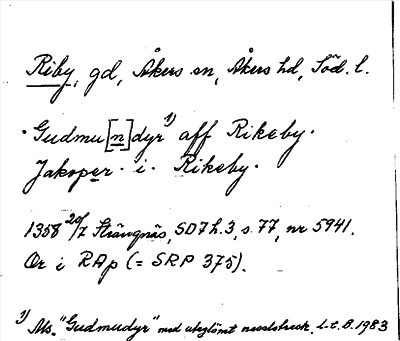 Riby, gd, Åkers sn, Åkers hd, Söd. l.
· Gudmu[n]dyr¹⁾ aff Rikeby ·
Jakoper · i · Rikeby ·
1358 20/7 Strängnäs, SD7 h.3, s. 77, nr 5941.
Or i RAp (= SRP 375).
¹⁾ Ms. "Gudmudyr" med utglömt nasalstreck. L-t. B. 1983